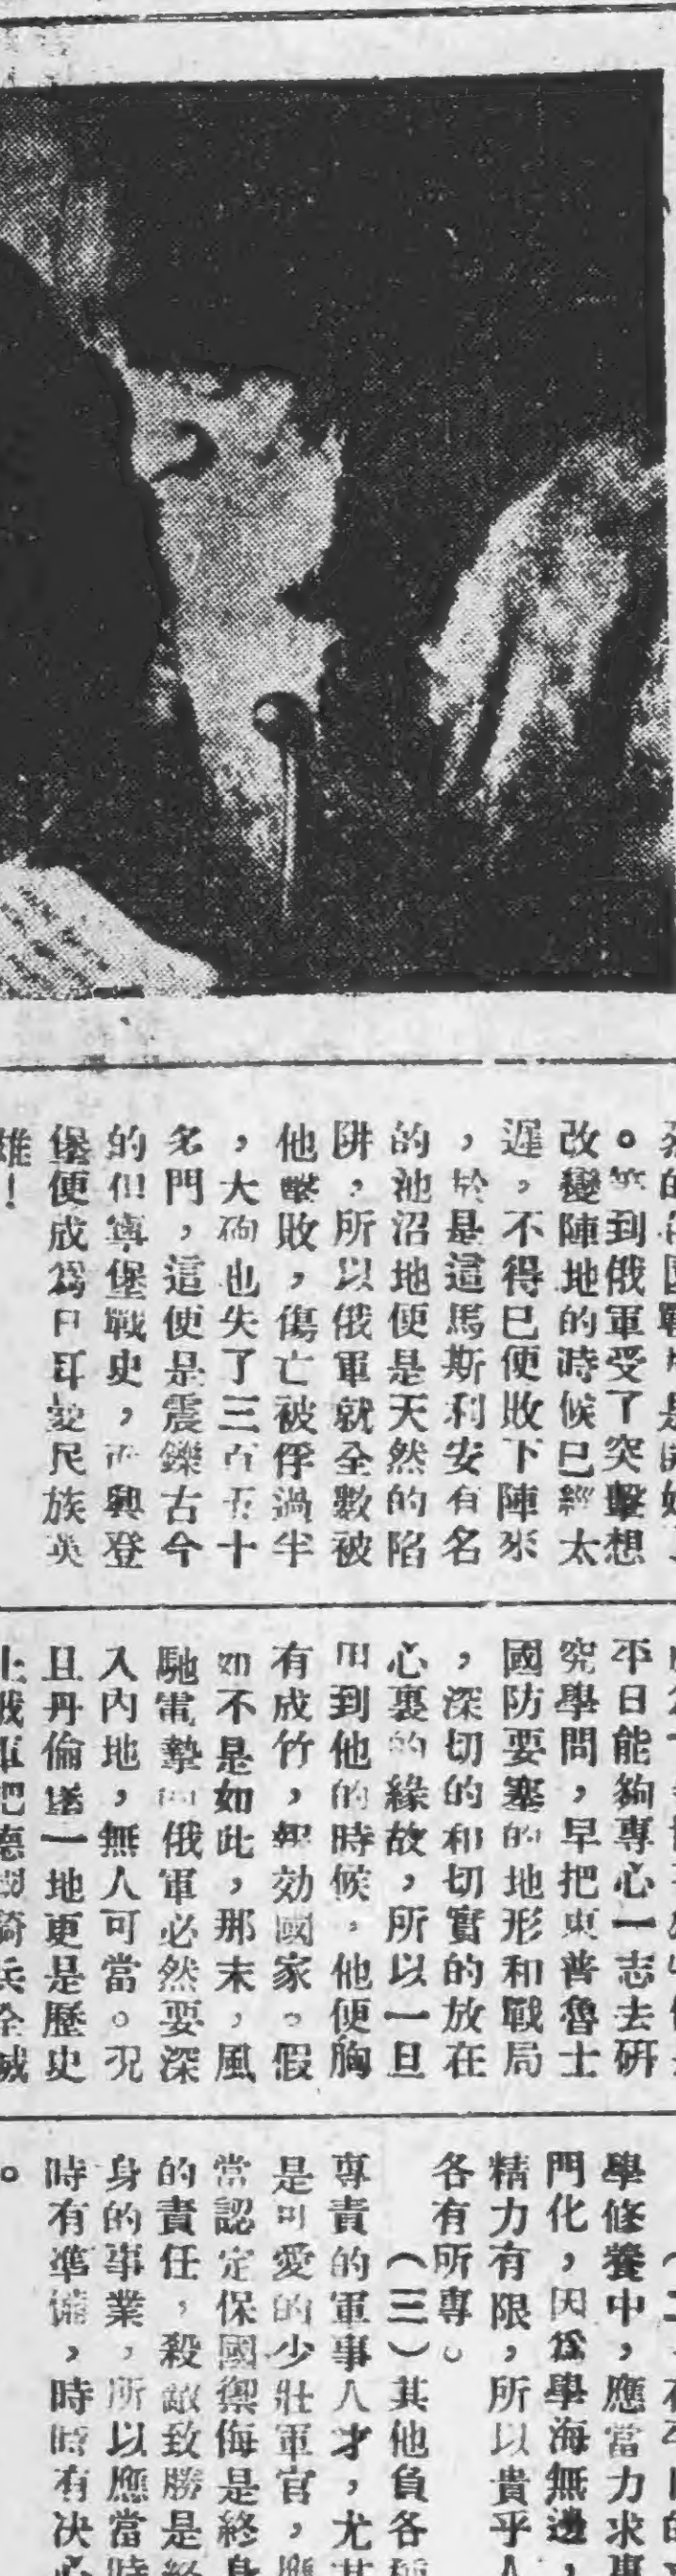 。等到俄軍受了突擊想
改變陣地的時候已經太
遲，不得已便敗下陣來
，於是這馬斯利安有名
的池沼地便是天然的陷
阱，所以俄軍就全數被
他擊敗，傷亡被俘過半
，大砲也失了三百五十
多門，這便是震鑠古今
的但寧堡戰史，而興登
堡便成爲日耳曼民族英
雄！
平日能夠專心一志去研
究學問，早把東普魯士
國防要塞的地形和戰局
，深切的和切實的放在
心裏的緣故，所以一旦
用到他的時候，他便胸
有成竹，報効國家。假
如不是如此，那末，風
馳電掣的俄軍必然要深
入內地，無人可當。况
且丹倫堡一地更是歷史
上俄軍把德國騎兵全滅
學修養中，應當力求專
門化，因爲學海無邊，
精力有限，所以貴乎人
各有所專。
（三）其他負各種
專責的軍事人才，尤其
是可愛的少壯軍官，應
當認定保國禦侮是終身
的責任，殺敵致勝是終
身的事業，所以應當時
時有準備，時時有决心
。